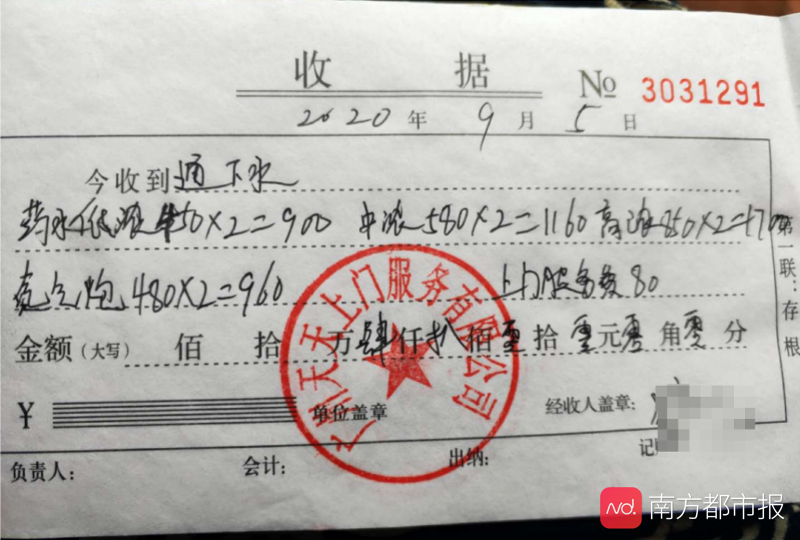 收 据 № 3031291
2020 年 9 月 5 日
今收到 通下水
药水低浓450×2=900 中浓580×2=1160 高浓850×2=1700
氮气炮480×2=960 上门服务费80
金额(大写) 佰 拾 万 肆 仟 扒 佰 零 拾 零 元 零 角 零 分
¥ 单位盖章 经收人盖章:
负责人: 会计: 出纳: 记
第一联:存根
广州天天上门服务有限公司
nd. 南方都市报